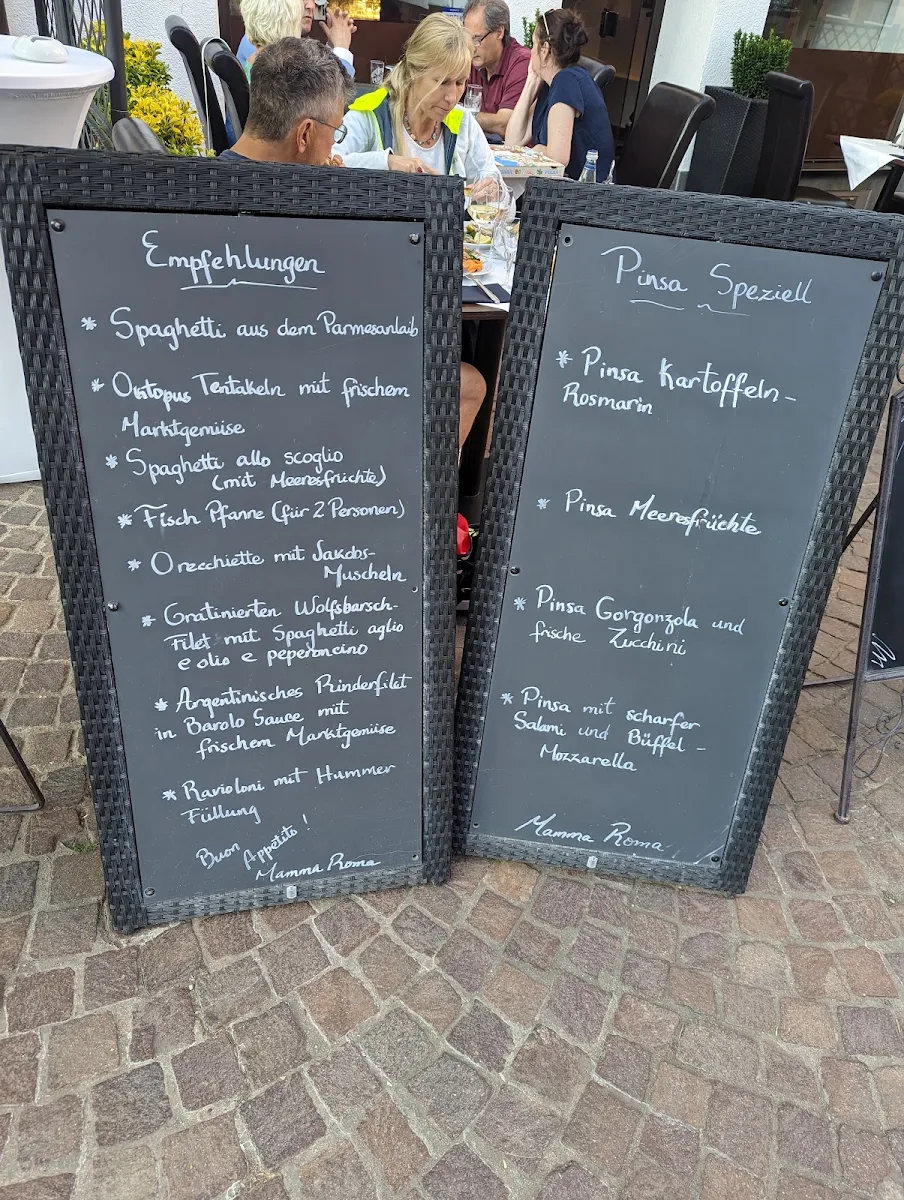 Empfehlungen
* Spaghetti aus dem Parmesanlaib
* Oktopus Tentakeln mit frischem
Marktgemüse
* Spaghetti allo scoglio
(mit Meeresfrüchte)
* Fisch Pfanne (für 2 Personen)
* Orecchiette mit Jakobs-
Muscheln
* Gratinierten Wolfsbarsch-
Filet mit Spaghetti aglio
e olio e peperoncino
* Argentinisches Rinderfilet
in Barolo Sauce mit
frischem Marktgemüse
* Ravioloni mit Hummer
Füllung
Buon Appetito!
Mamma Roma
Pinsa Speziell
* Pinsa Kartoffeln-
Rosmarin
* Pinsa Meeresfrüchte
* Pinsa Gorgonzola und
frische Zucchini
* Pinsa mit scharfer
Salami und Büffel-
Mozzarella
Mamma Roma